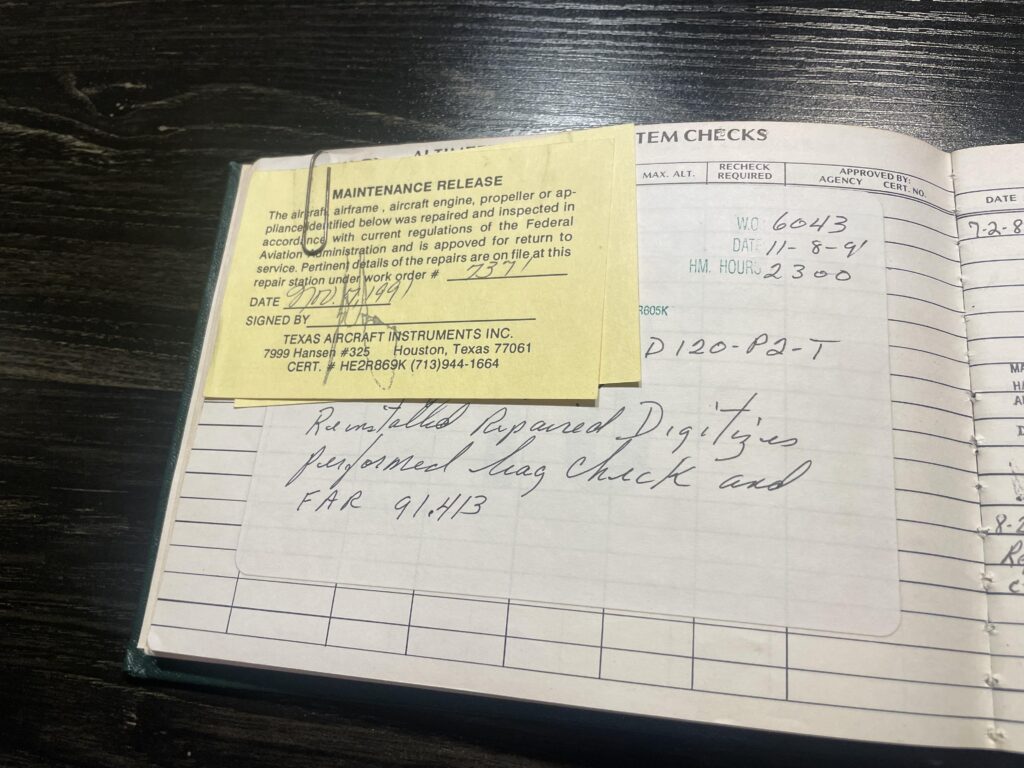 TEM CHECKS
MAX. ALT.
RECHECK
REQUIRED
APPROVED BY:
AGENCY CERT. NO.
MAINTENANCE RELEASE
The aircraft, airframe , aircraft engine, propeller or ap-
pliance identified below was repaired and inspected in
accordance with current regulations of the Federal
Aviation Administration and is appoved for return to
service. Pertinent details of the repairs are on file at this
repair station under work order # 7371
DATE Nov, 1991
SIGNED BY
TEXAS AIRCRAFT INSTRUMENTS INC.
7999 Hansen #325 Houston, Texas 77061
CERT. # HE2R869K (713)944-1664
W.O 6043
DATE 11-8-91
HM. HOURS 2300
R605K
D120-P2-T
Reinstalled Repaired Digitizer
performed leag check and
FAR 91.413
DATE
7-2-8
8-2